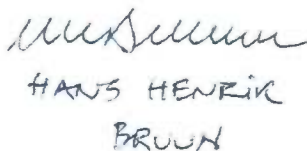 HANS HENRIK
BRUUN